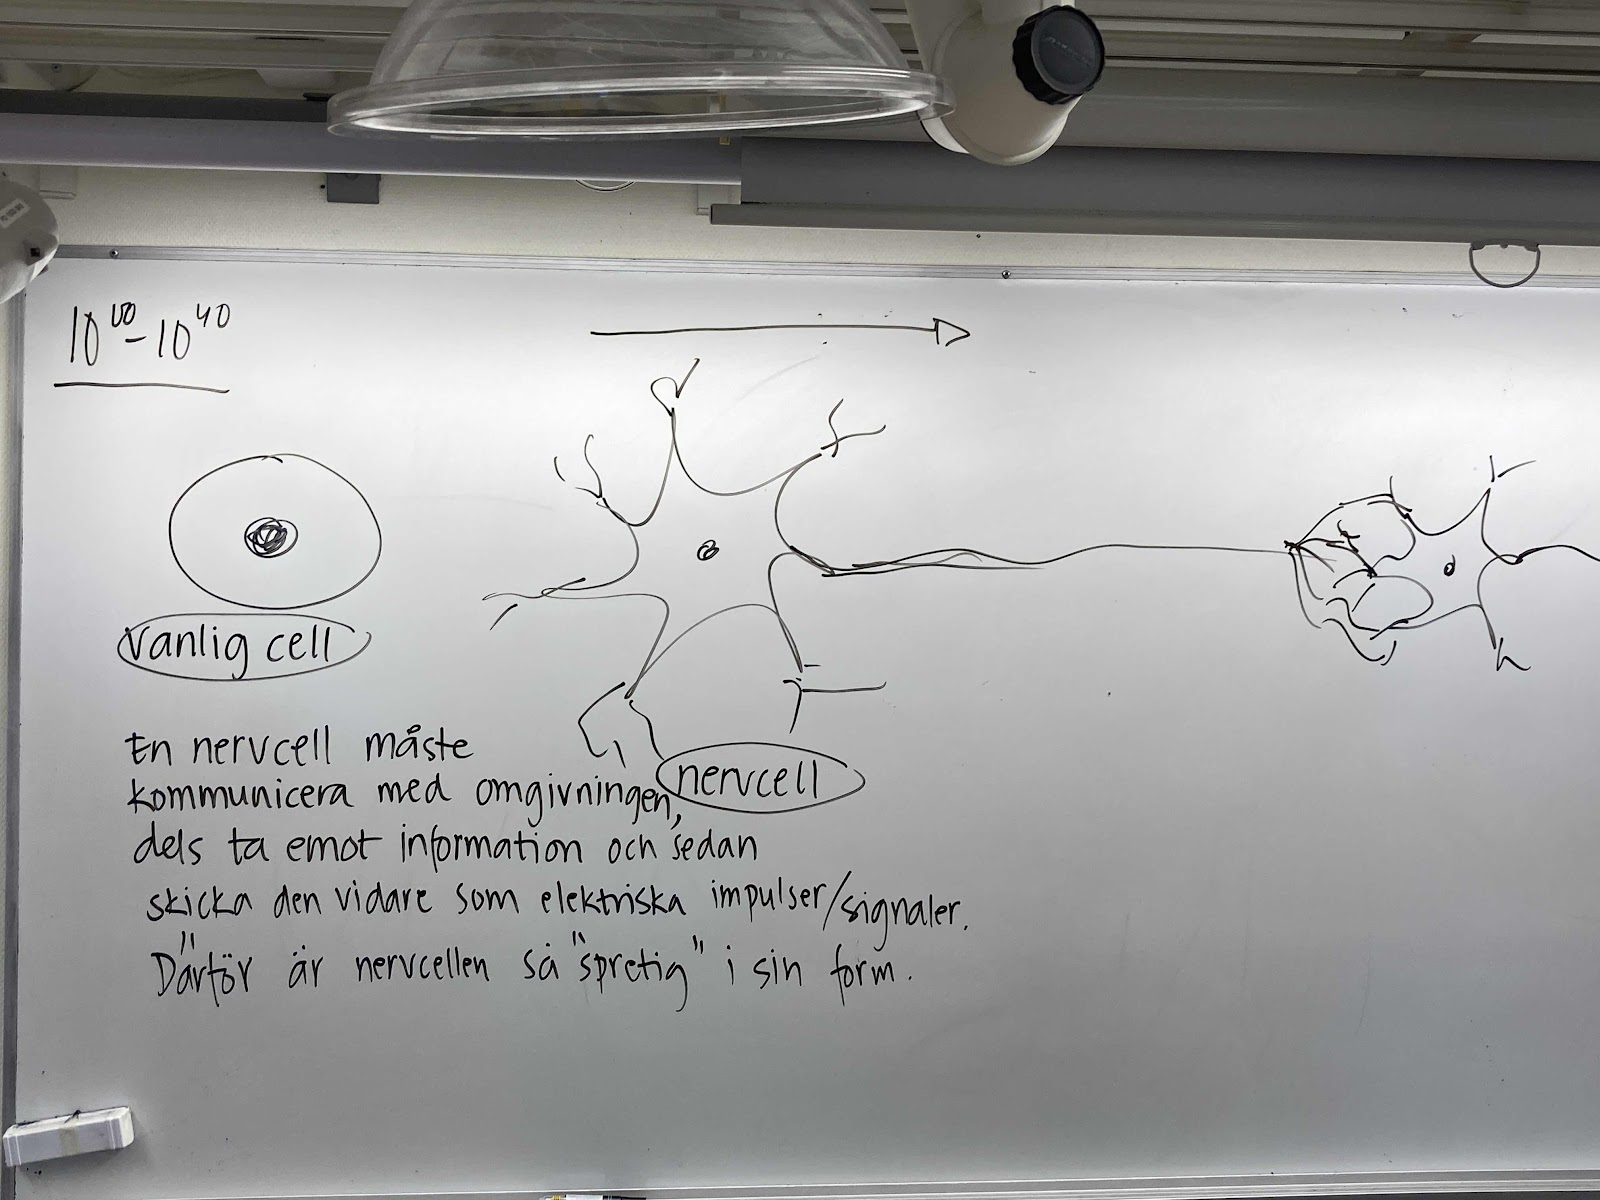 10⁰⁰-10⁴⁰
vanlig cell
nervcell
En nervcell måste
kommunicera med omgivningen,
dels ta emot information och sedan
skicka den vidare som elektriska impulser/signaler.
Därför är nervcellen så "spretig" i sin form.